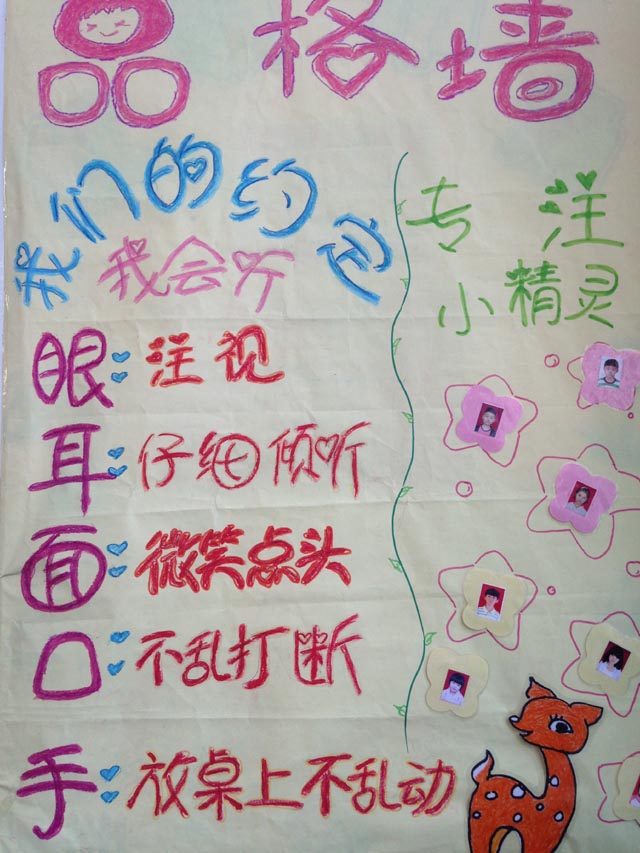 品格墙
我们的约定
我会听
眼:注视
耳:仔细倾听
面:微笑点头
口:不乱打断
手:放桌上不乱动
专注
小精灵